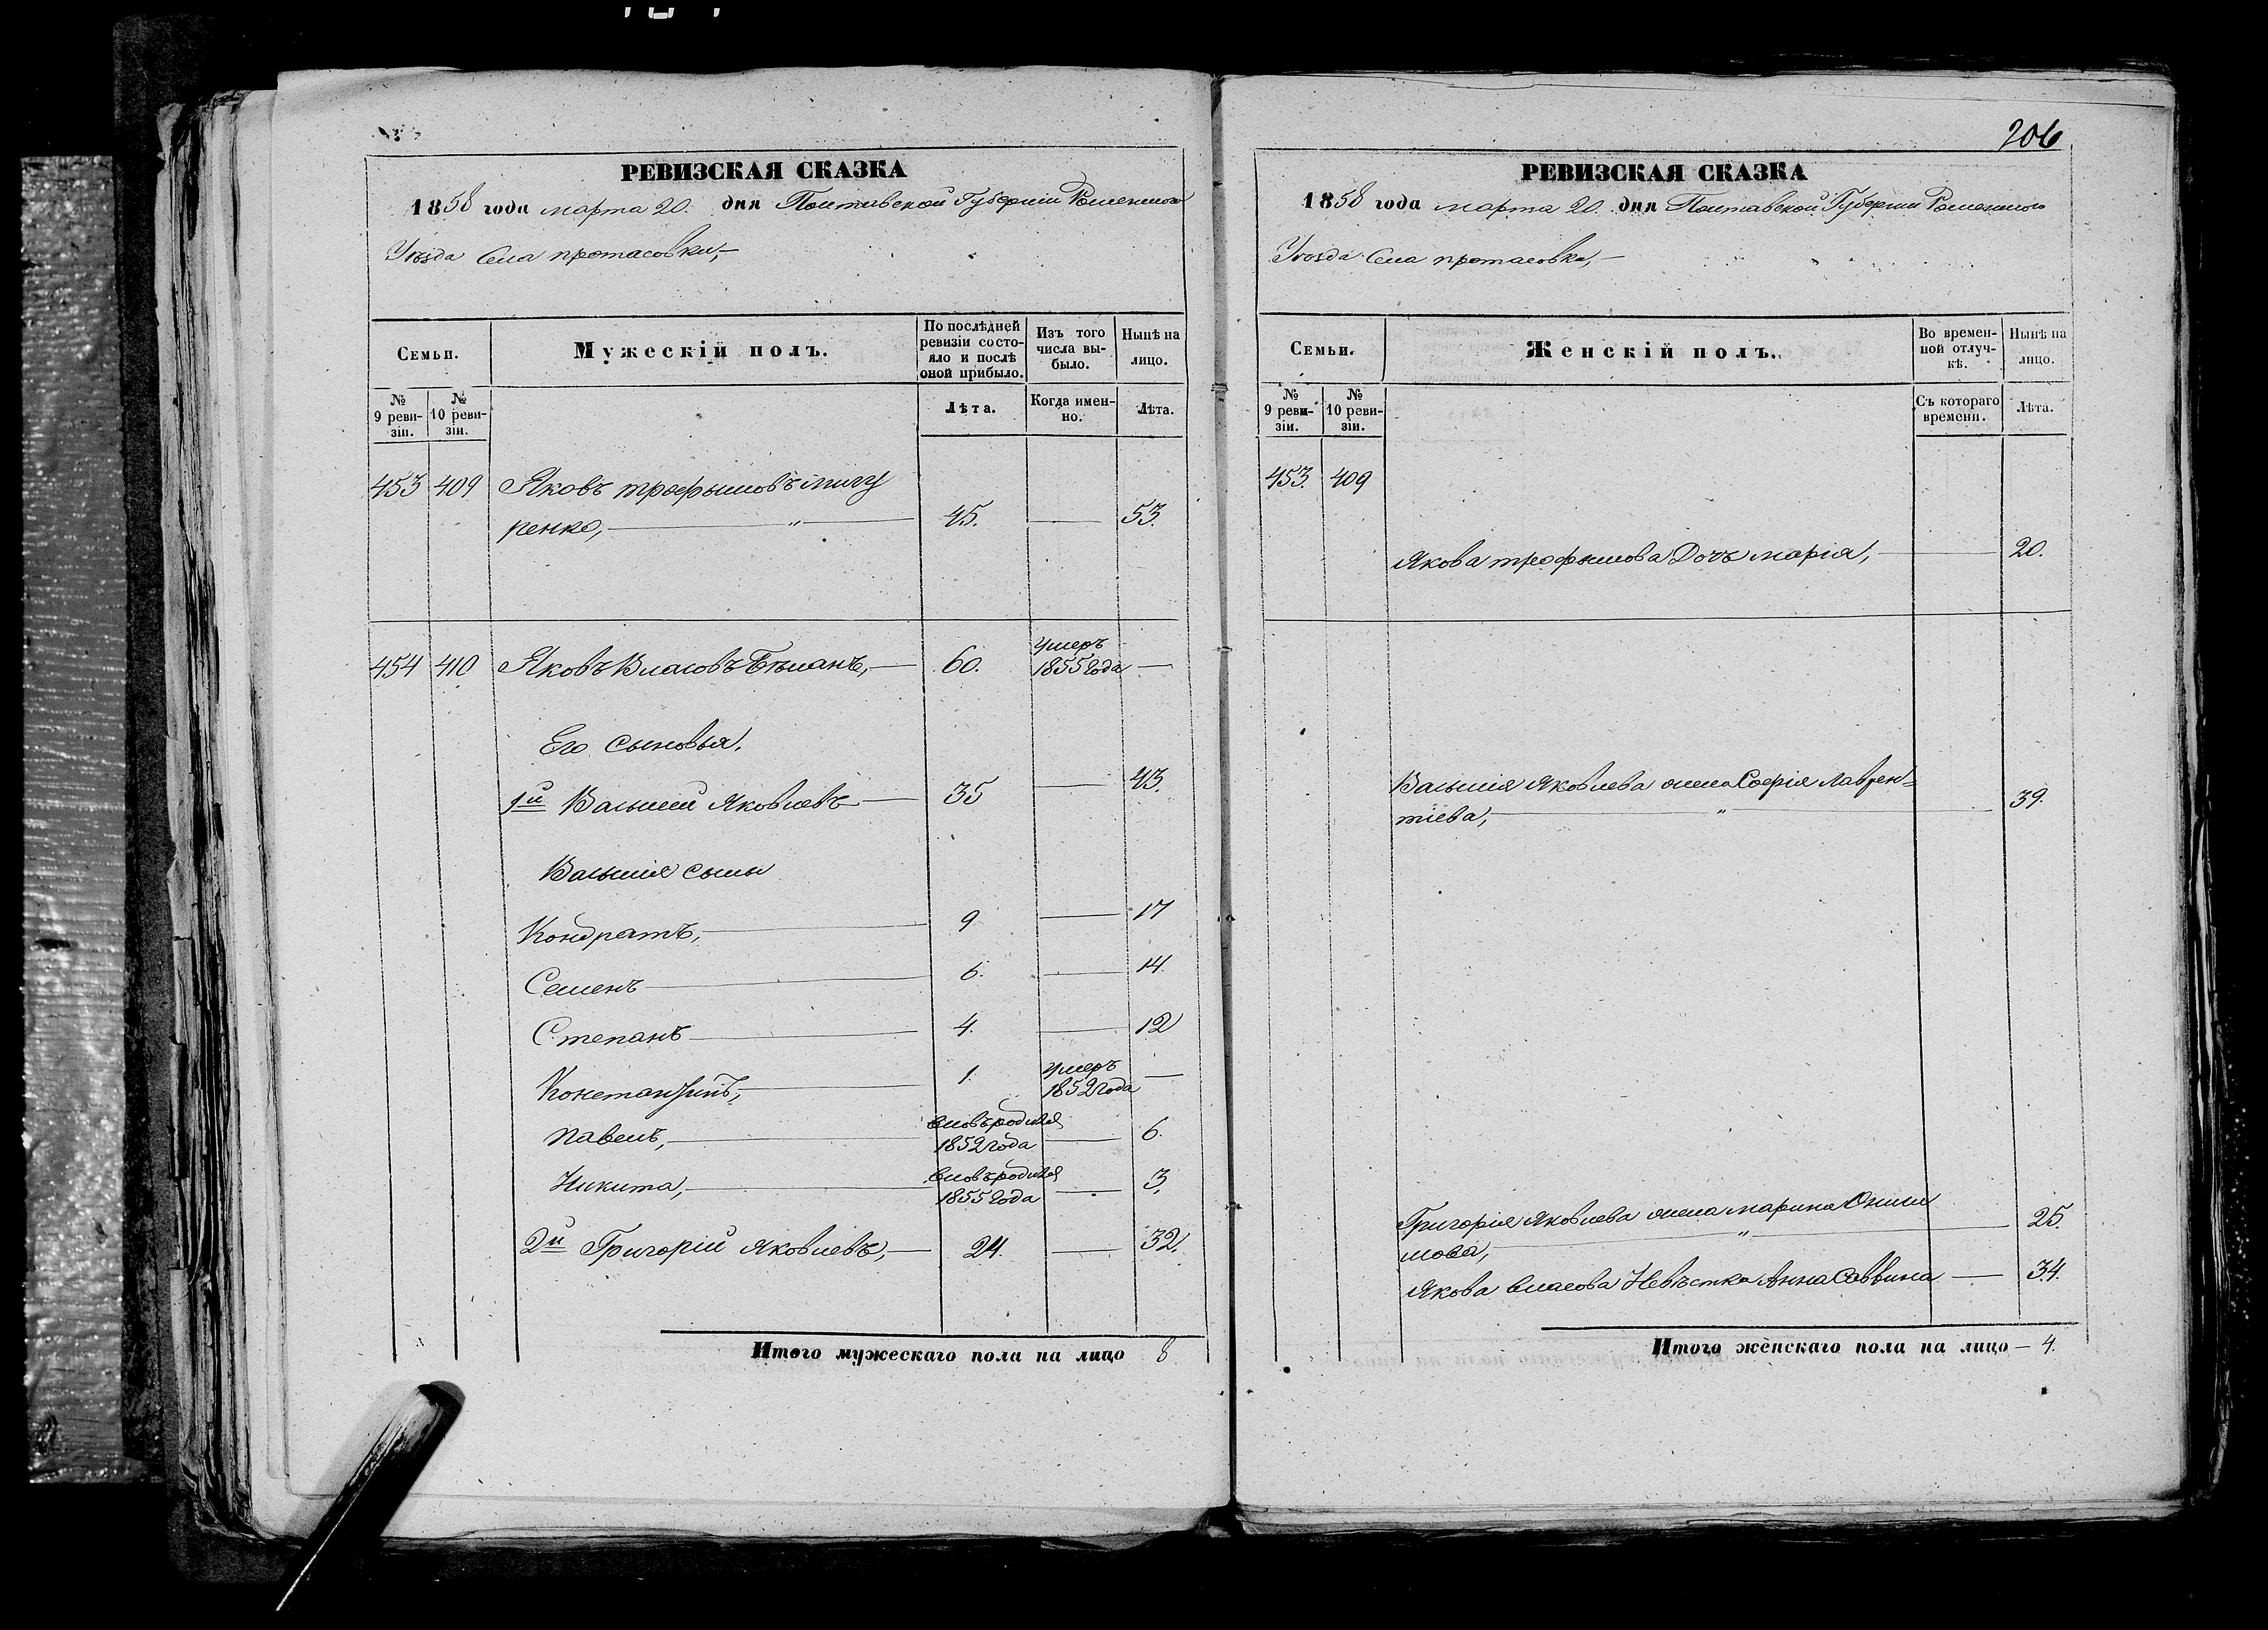 РЕВИЗСКАЯ СКАЗКА
1858 года марта 20. дня Полтавской Губерніи Роменского
Уѣзда Села протасовки,
Семьи.
Мужескій полъ.
По послѣдней ревизіи состояло и послѣ оной прибыло.
Изъ того числа выбыло.
Нынѣ на лицо.
№ 9 ревизіи.
№ 10 ревизіи.
Лѣта.
Когда именно.
Лѣта.
453 409 Яковъ трофымовъ
ренко, — " — 45. — 53.
454 410 Яковъ Власовъ Бѣланъ, — 60. умеръ 1855 года —
Его сыновья.
1й Василий Яковлевъ — 35 — 43.
Василия сыны
Кондратъ, — 9 — 17
Семенъ — 6. — 14.
Степанъ — 4. — 12
Константинъ, — 1. умеръ 1852 года —
павелъ, — вновьродился 1852 года — 6.
Никита, — вновьродился 1855 года — 3.
2й Григорій Яковлевъ, — 24. — 32.
Итого мужескаго пола на лицо 8
206
РЕВИЗСКАЯ СКАЗКА
1858 года марта 20. дня Полтавской Губернии Роменского
Уѣзда Села протасовки,
Семьи.
Женскій полъ.
Во временной отлучкѣ.
Нынѣ на лицо.
№ 9 ревизіи.
№ 10 ревизіи.
Съ котораго времени.
Лѣта.
453. 409
Якова трофымова Дочь марія, — 20.
Василия Яковлева жена Софія Лаврен-
тіева, — " — 39.
Григорія Яковлева жена марина Они
мова, — " — 25.
Якова власова Невѣстка Анна Саввина — 34.
Итого женскаго пола на лицо — 4.